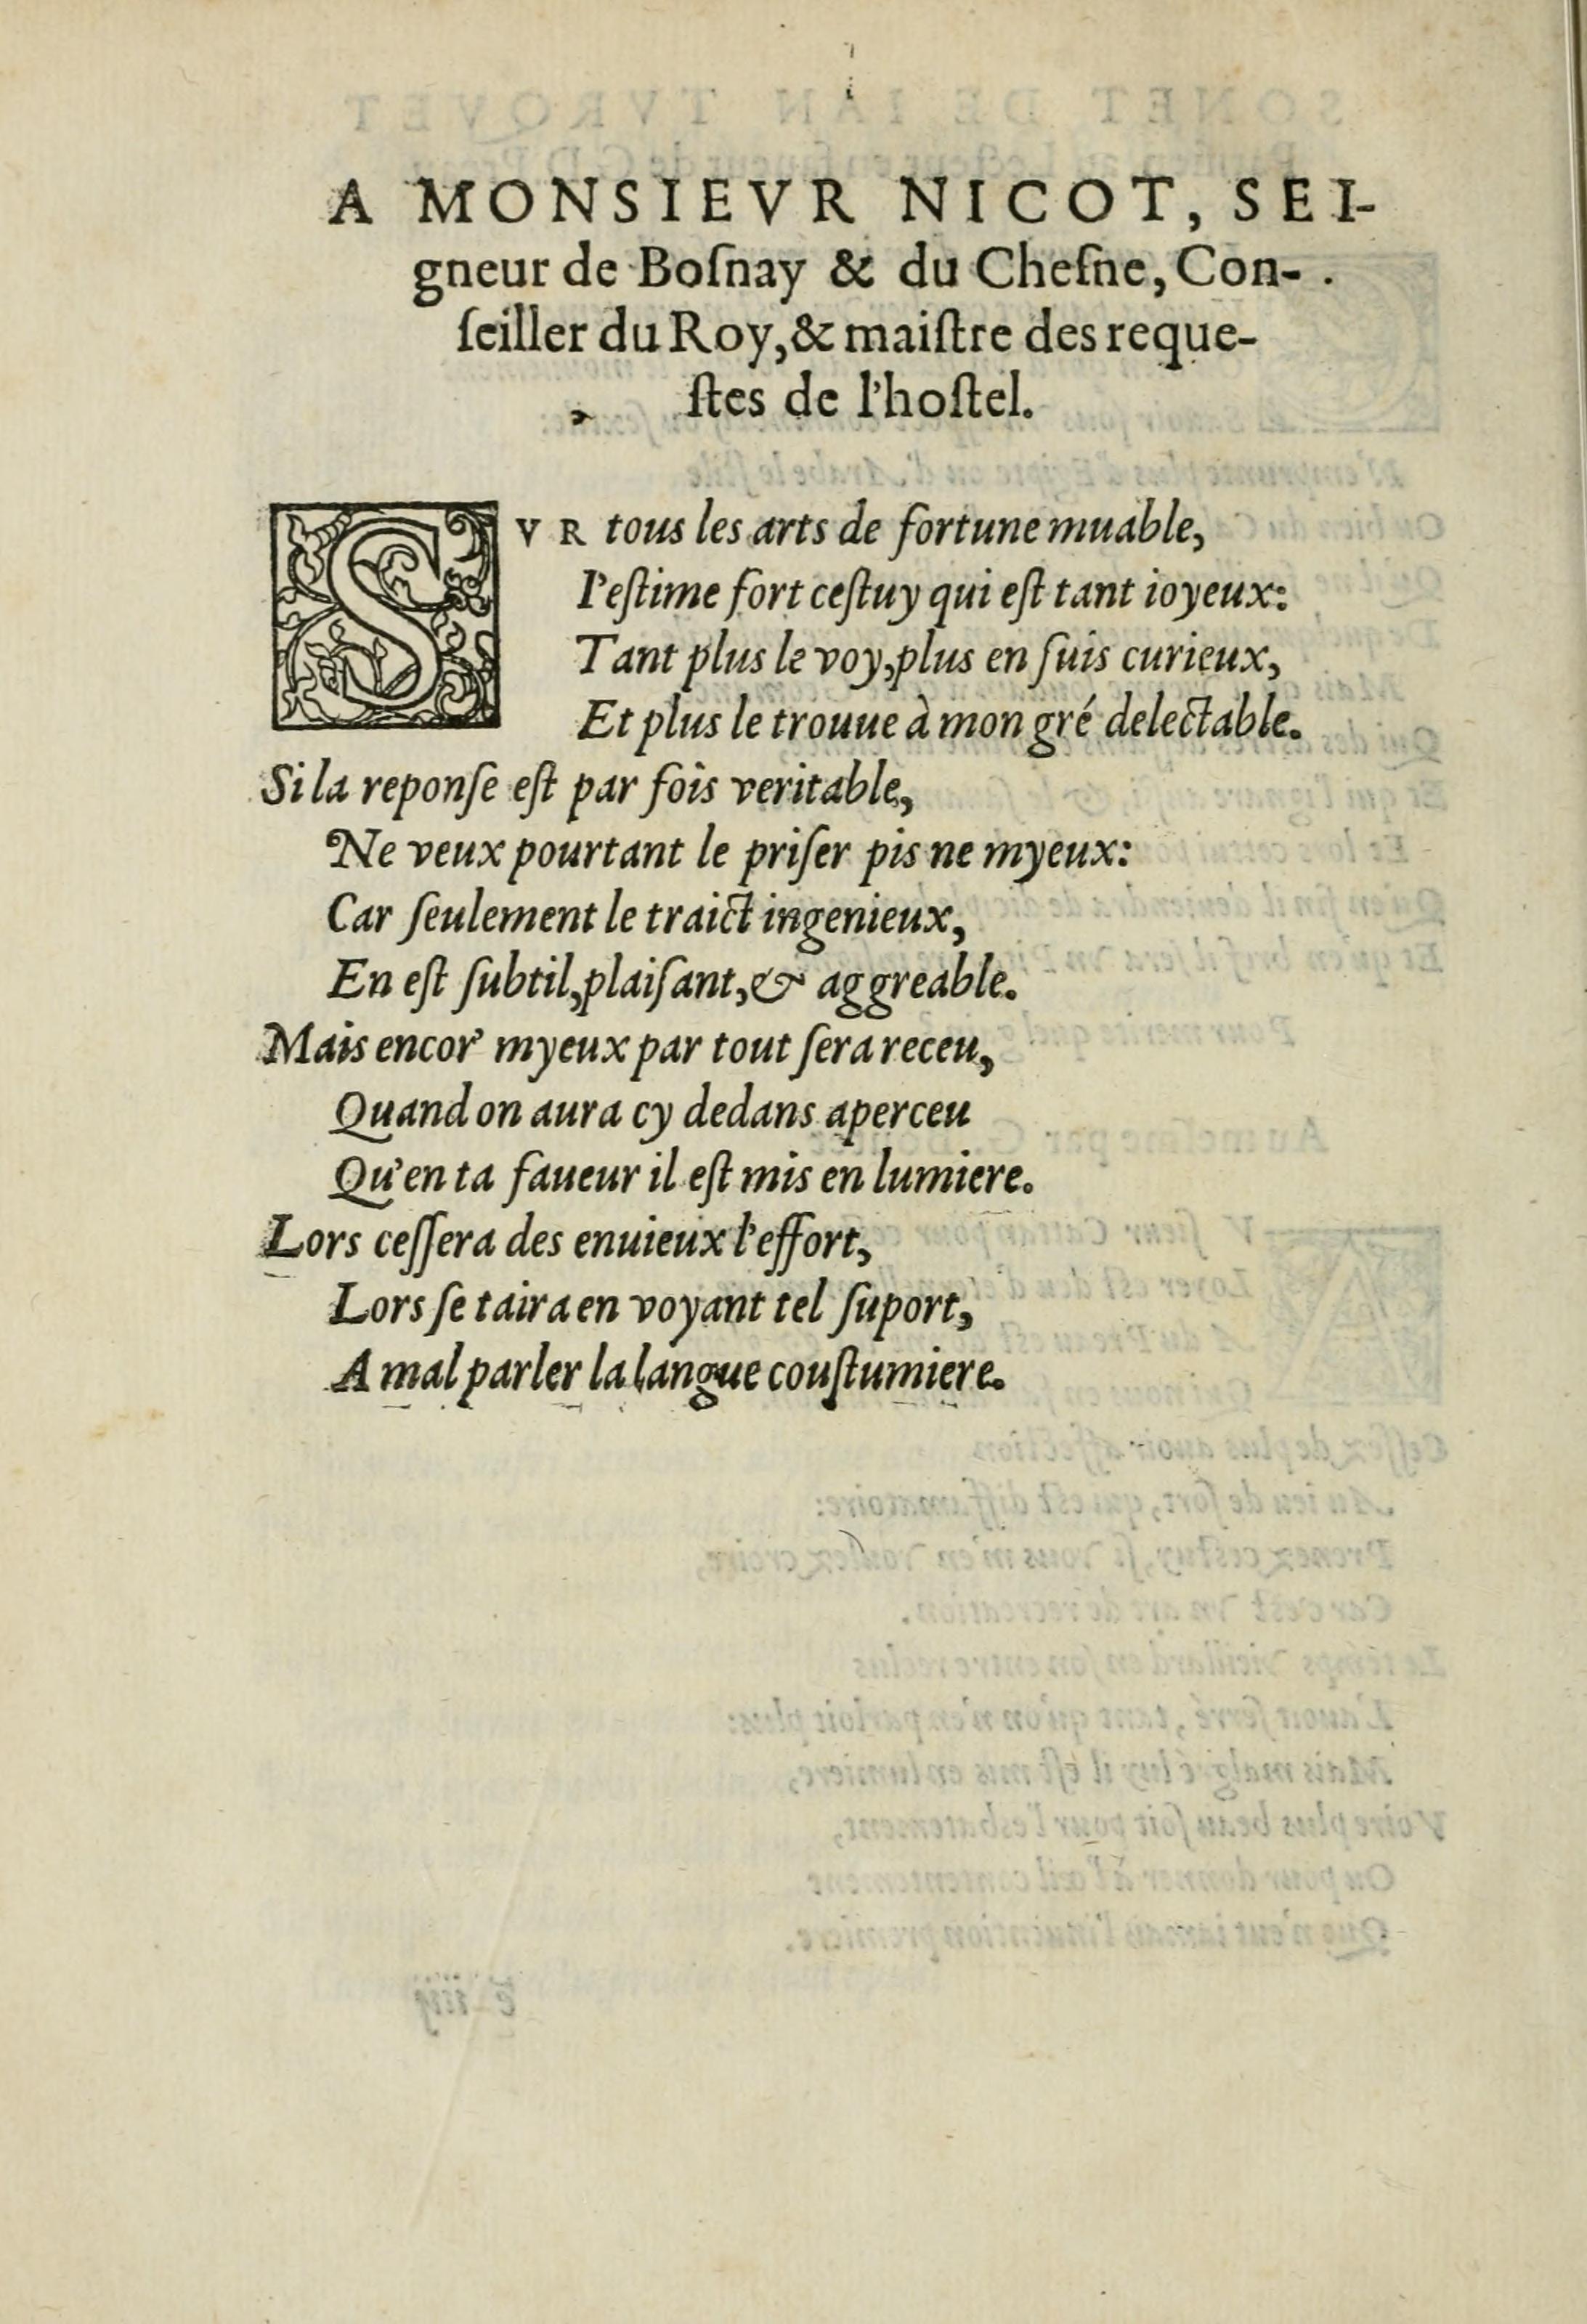 A MONSIEVR NICOT, SEI-
gneur de Boſnay & du Cheſne, Con-
ſeiller du Roy, & maiſtre des reque-
ſtes de l'hoſtel.
SVR tous les arts de fortune muable,
I'eſtime fort ceſtuy qui eſt tant ioyeux:
Tant plus le voy, plus en ſuis curieux,
Et plus le trouue à mon gré delectable.
Si la reponſe eſt par fois veritable,
Ne veux pourtant le priſer pis ne myeux:
Car ſeulement le traict ingenieux,
En eſt ſubtil, plaiſant, & aggreable.
Mais encor' myeux par tout ſera receu,
Quand on aura cy dedans aperceu
Qu'en ta faueur il eſt mis en lumiere.
Lors ceſſera des enuieux l'effort,
Lors ſe taira en voyant tel ſuport,
A mal parler la langue couſtumiere.